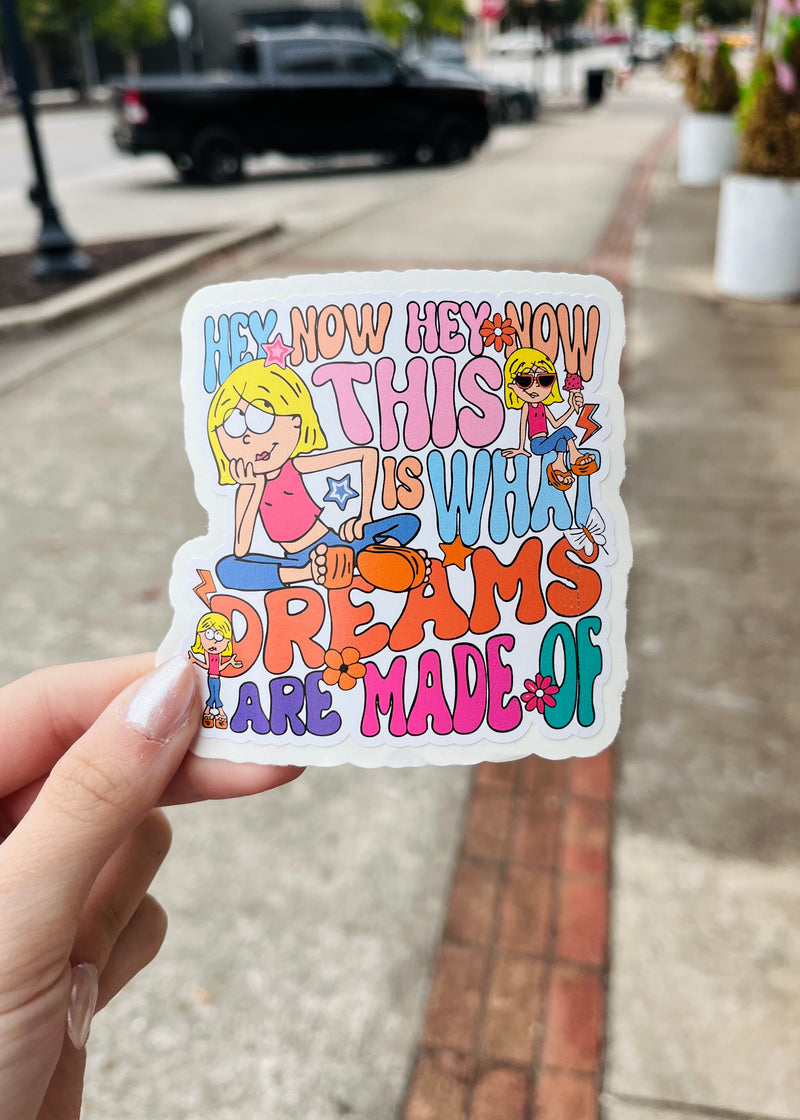 HEY NOW HEY NOW
THIS
IS WHAT
DREAMS
ARE MADE OF